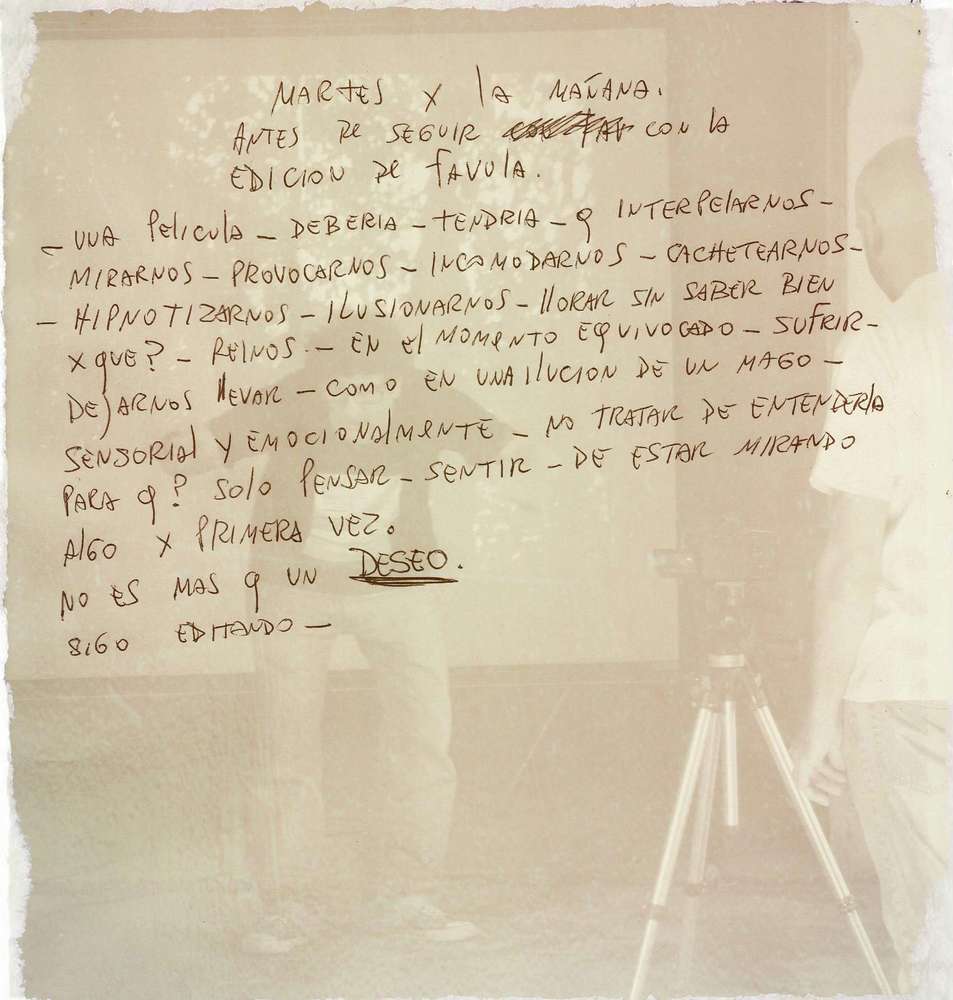 MARTES X lA MAÑANA.
ANTES DE SEGUIR CON lA
EDICION DE FAVUlA.
– UNA PelICUlA – DEBERIA – TENDRIA – q INTERPElARNOS –
MIRARNOS – PROVOCARNOS – INCOMODARNOS – CACHETEARNOS –
– HIPNOTIZARNOS – ILUSIONARNOS – llORAR SIN SABER BIEN
X QUE? – REINOS. – EN El MOMENTO EQUIVOCADO – SUFRIR –
DEJARNOS llEVAR – COMO EN UNA IlUCION DE UN MAGO –
SENSORIAl Y EMOCIONAlMENTE – NO TRATAR DE ENTENDERlA
PARA q? SOlO PENSAR – SENTIR – DE ESTAR MIRANDO
AlGO X PRIMERA VEZ.
NO ES MAS q UN DESEO.
SIGO EDITANDO –